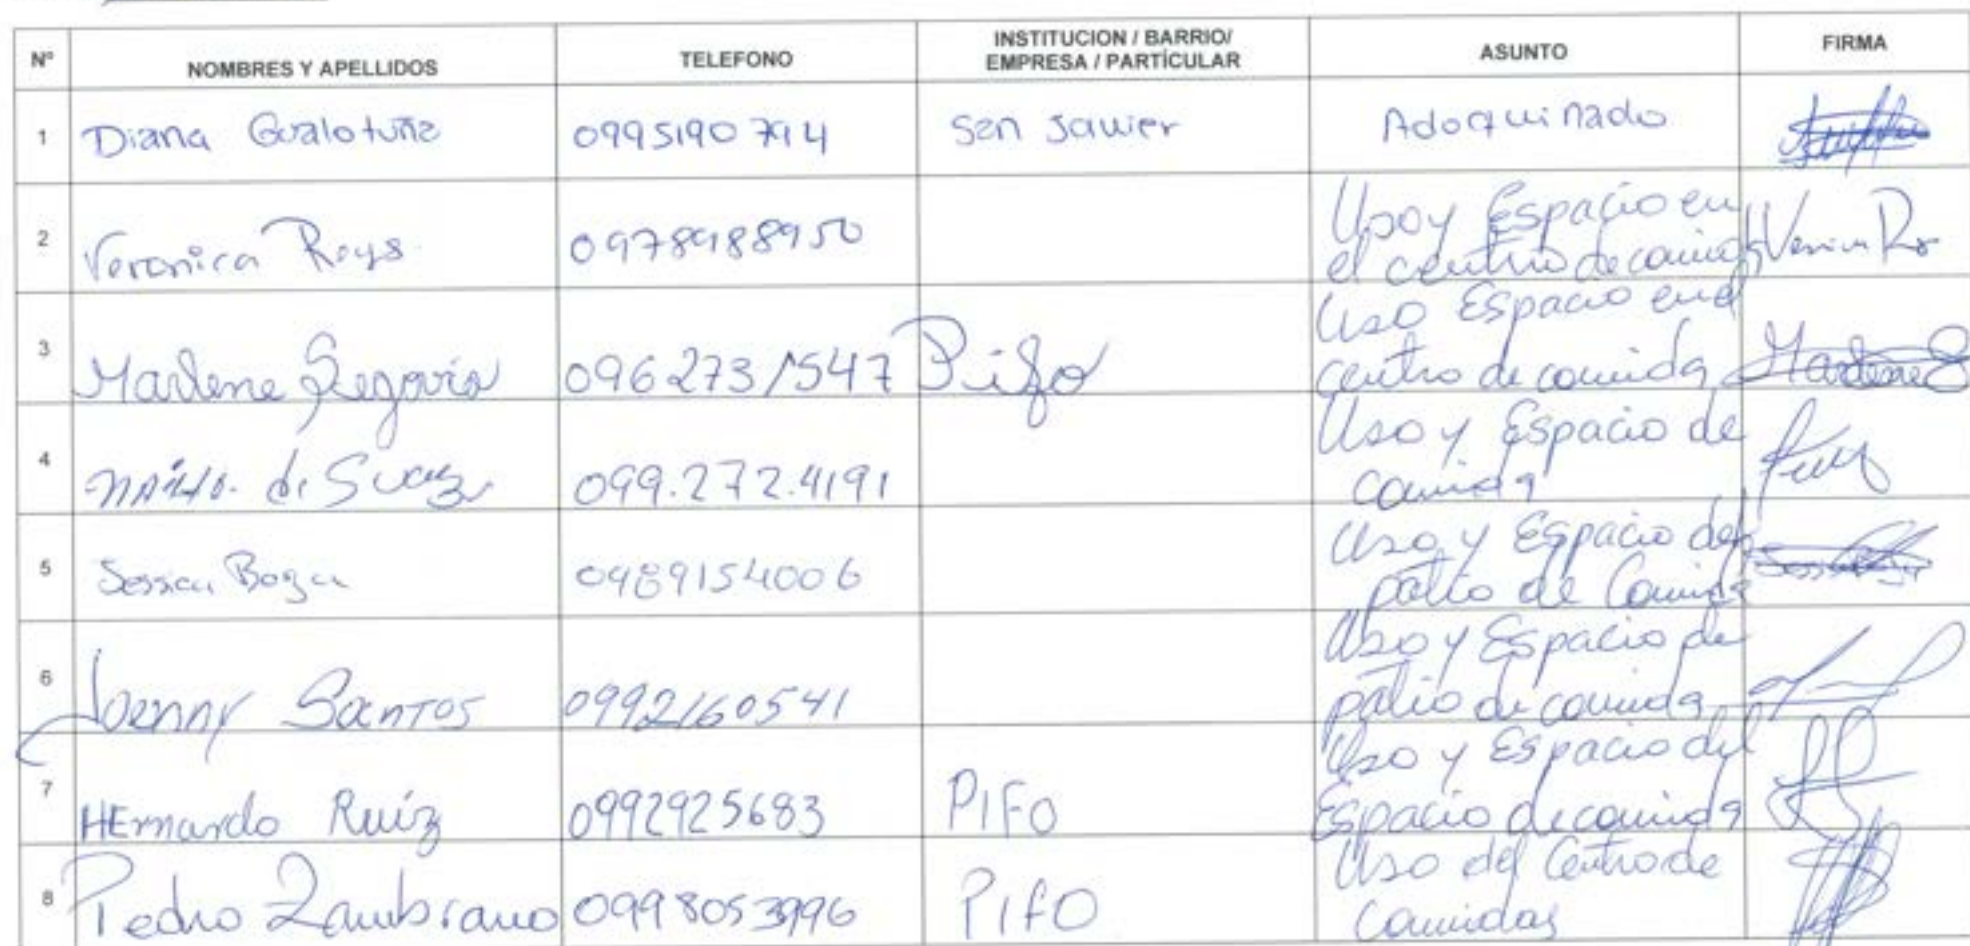 Nº NOMBRES Y APELLIDOS TELEFONO INSTITUCION / BARRIO/ EMPRESA / PARTÍCULAR ASUNTO FIRMA
1 Diana Gualotuña 0995190794 San Javier Adoquinado
2 Veronica Reys 0978988950 Uso y Espacio en
el centro de comidas
3 Marlene Segovia 0962731547 Pifo Uso Espacio en el
centro de comida Marlene S
4 de 099.272.4191 Uso y Espacio de
comida
5 Jessica 0989154006 Uso y Espacio del
patio de Comida
6 Joenny Santos 0992160541 Uso y Espacio de
patio de comida
7 HErnando Ruíz 0992925683 PIFO Uso y Espacio del
Espacio de comida
8 Pedro Zambrano 0998053996 PIFO Uso del Centro de
Comidas